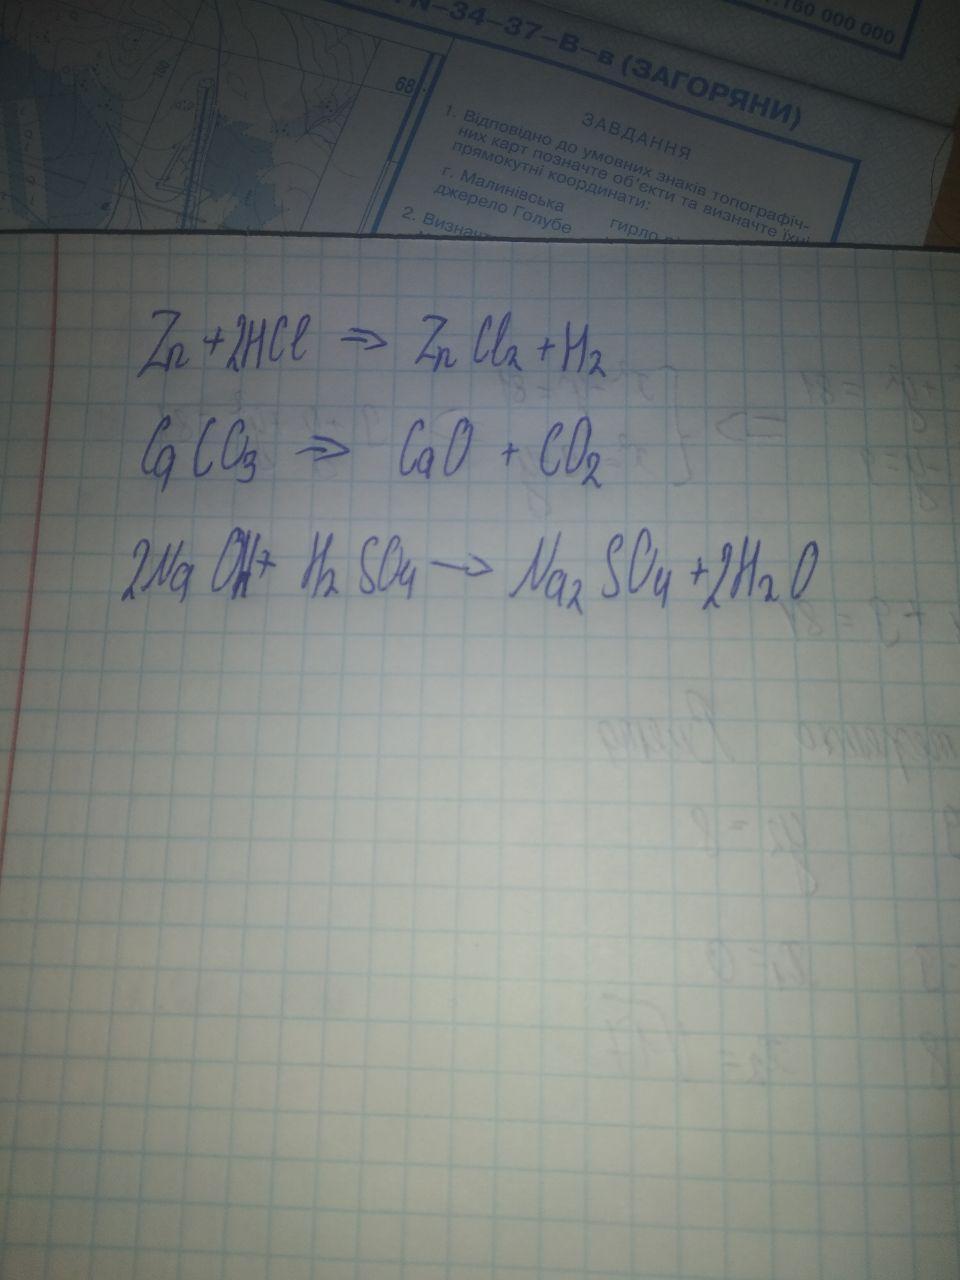 N-34-37-В-в (ЗАГОРЯНИ)
68
ЗАВДАННЯ
1. Відповідно до умовних знаків топографіч-
них карт позначте об'єкти та визначте їхні
прямокутні координати:
г. Малинівська гирло
джерело Голубе
2. Визначт
Zn + 2HCl ⇒ ZnCl₂ + H₂
CaCO₃ ⇒ CaO + CO₂
2NaOH + H₂SO₄ → Na₂SO₄ + 2H₂O